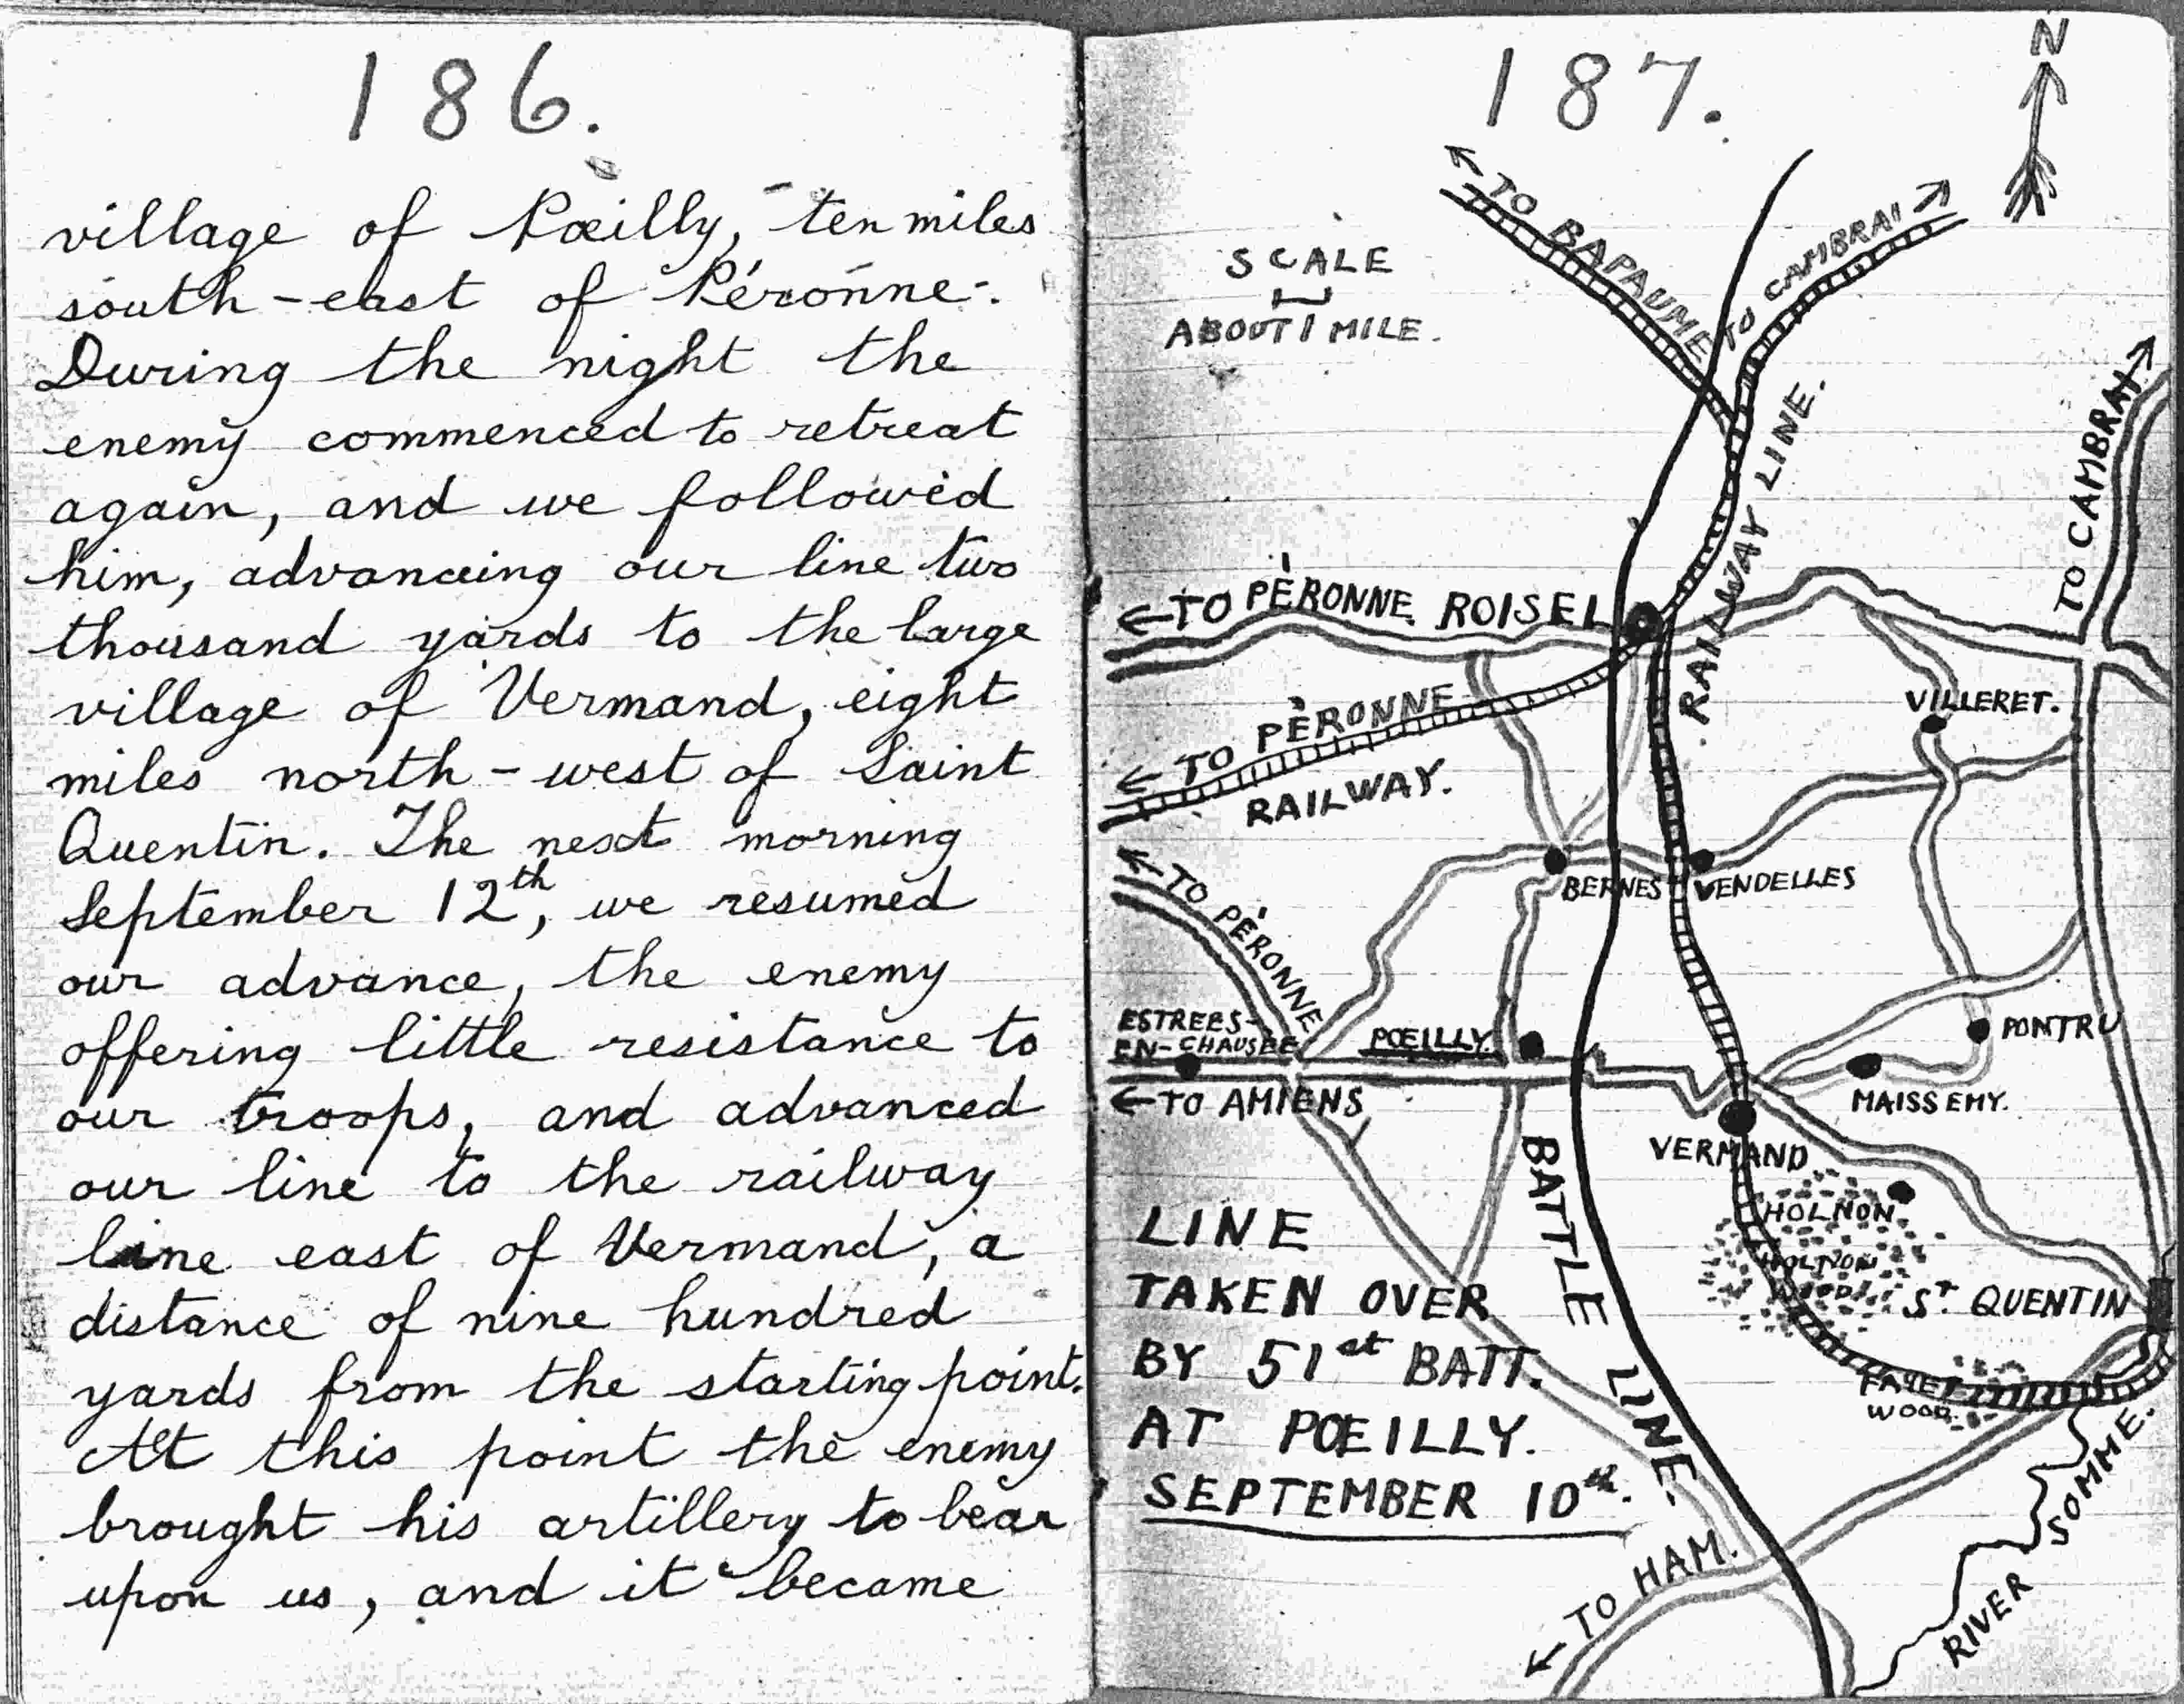 186.
village of Pœilly, ten miles
south-east of Péronne.
During the night the
enemy commenced to retreat
again, and we followed
him, advancing our line two
thousand yards to the large
village of Vermand, eight
miles north-west of Saint
Quentin. The next morning
September 12th, we resumed
our advance, the enemy
offering little resistance to
our troops, and advanced
our line to the railway
line east of Vermand, a
distance of nine hundred
yards from the starting point.
At this point the enemy
brought his artillery to bear
upon us, and it became
187.
N
TO BAPAUME
TO CAMBRAI
SCALE
ABOUT 1 MILE.
RAILWAY LINE.
TO CAMBRAI
←TO PÉRONNE
ROISEL
VILLERET.
← TO PÉRONNE
RAILWAY.
BERNES
VENDELLES
← TO PÉRONNE
ESTREES-
EN-CHAUSÉE
PŒILLY.
PONTRU
← TO AMIENS
MAISSEMY.
VERMAND
HOLNON
HOLNON
WOOD
ST QUENTIN
BATTLE LINE.
LINE
TAKEN OVER
BY 51st BATT.
AT PŒILLY.
SEPTEMBER 10th.
FAYET
WOOD.
← TO HAM.
RIVER SOMME.